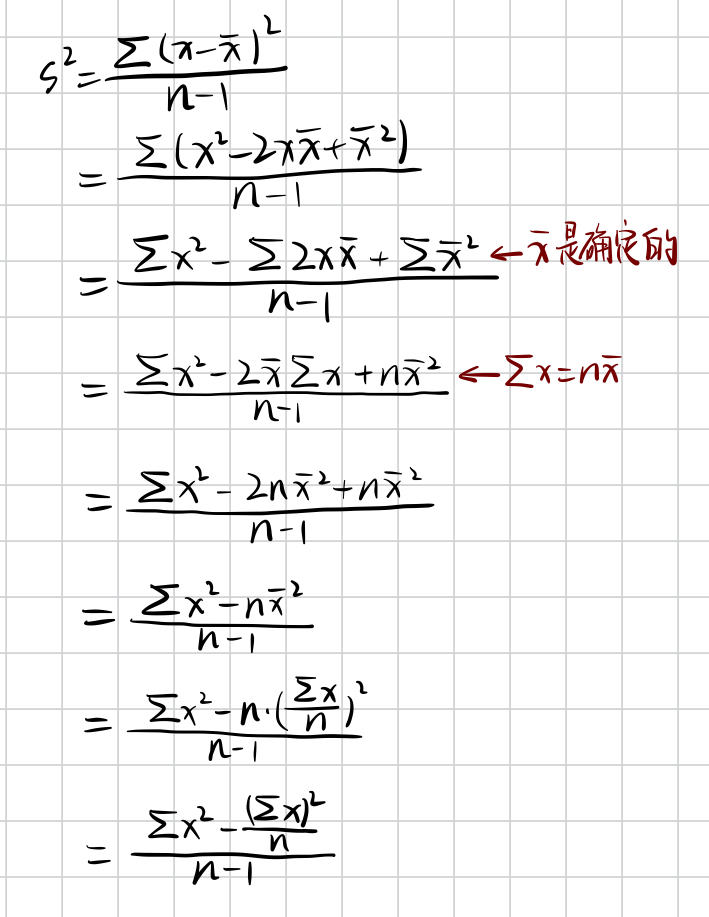 S²=Σ(x-x̄)²/n-1
=Σ(x²-2xx̄+x̄²)/n-1
=Σx²-Σ2xx̄+Σx̄²/n-1 ←x̄是确定的
=Σx²-2x̄Σx+nx̄²/n-1 ←Σx=nx̄
=Σx²-2nx̄²+nx̄²/n-1
=Σx²-nx̄²/n-1
=Σx²-n·(Σx/n)²/n-1
=Σx²-(Σx)²/n/n-1